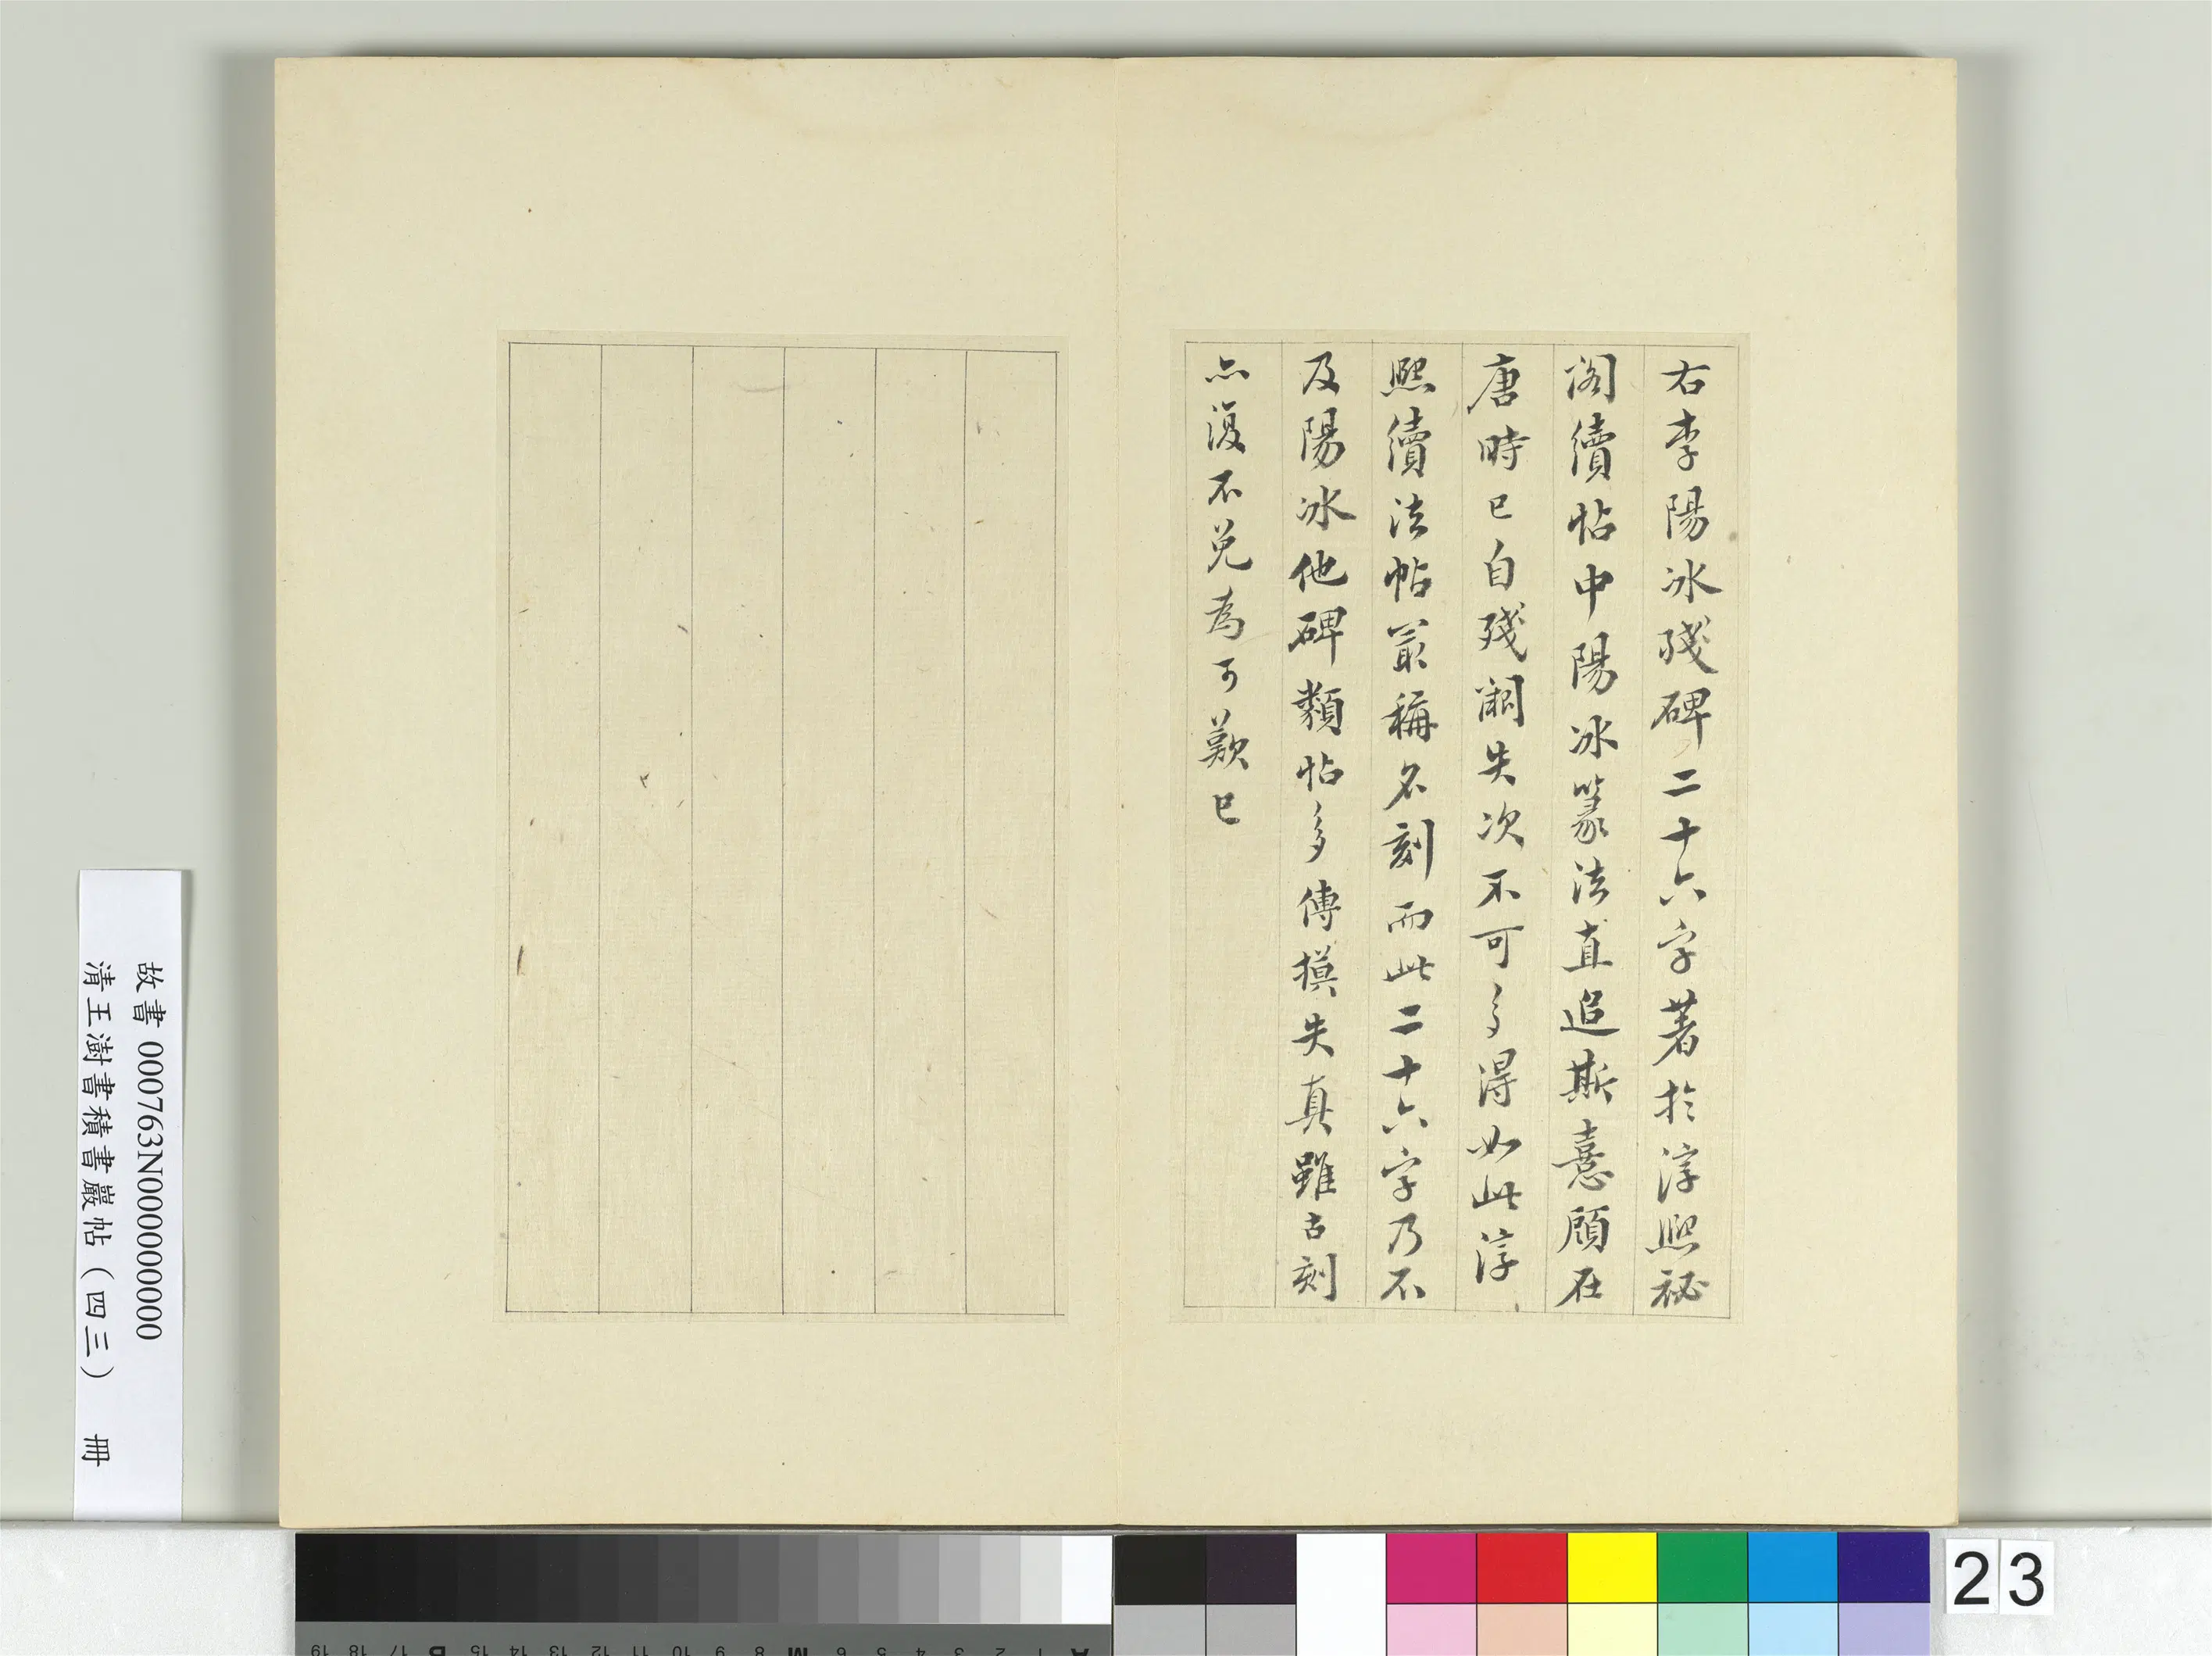 右李陽冰殘碑二十六字著於淳熙祕
閣續帖中陽冰篆法直追斯憙頋在
唐時已自殘闕失次不可多得如此淳
熙續法帖最稱名刻而此二十六字乃不
及陽冰他碑類帖多傳摸失真雖古刻
亦復不免為可歎已
故書 000763N000000000
清王澍書積書巖帖（四三） 冊
23
19 18 17 B 16 15 14 13 12 11 10 9 8 M 7 6 5 4 3 2 1 A